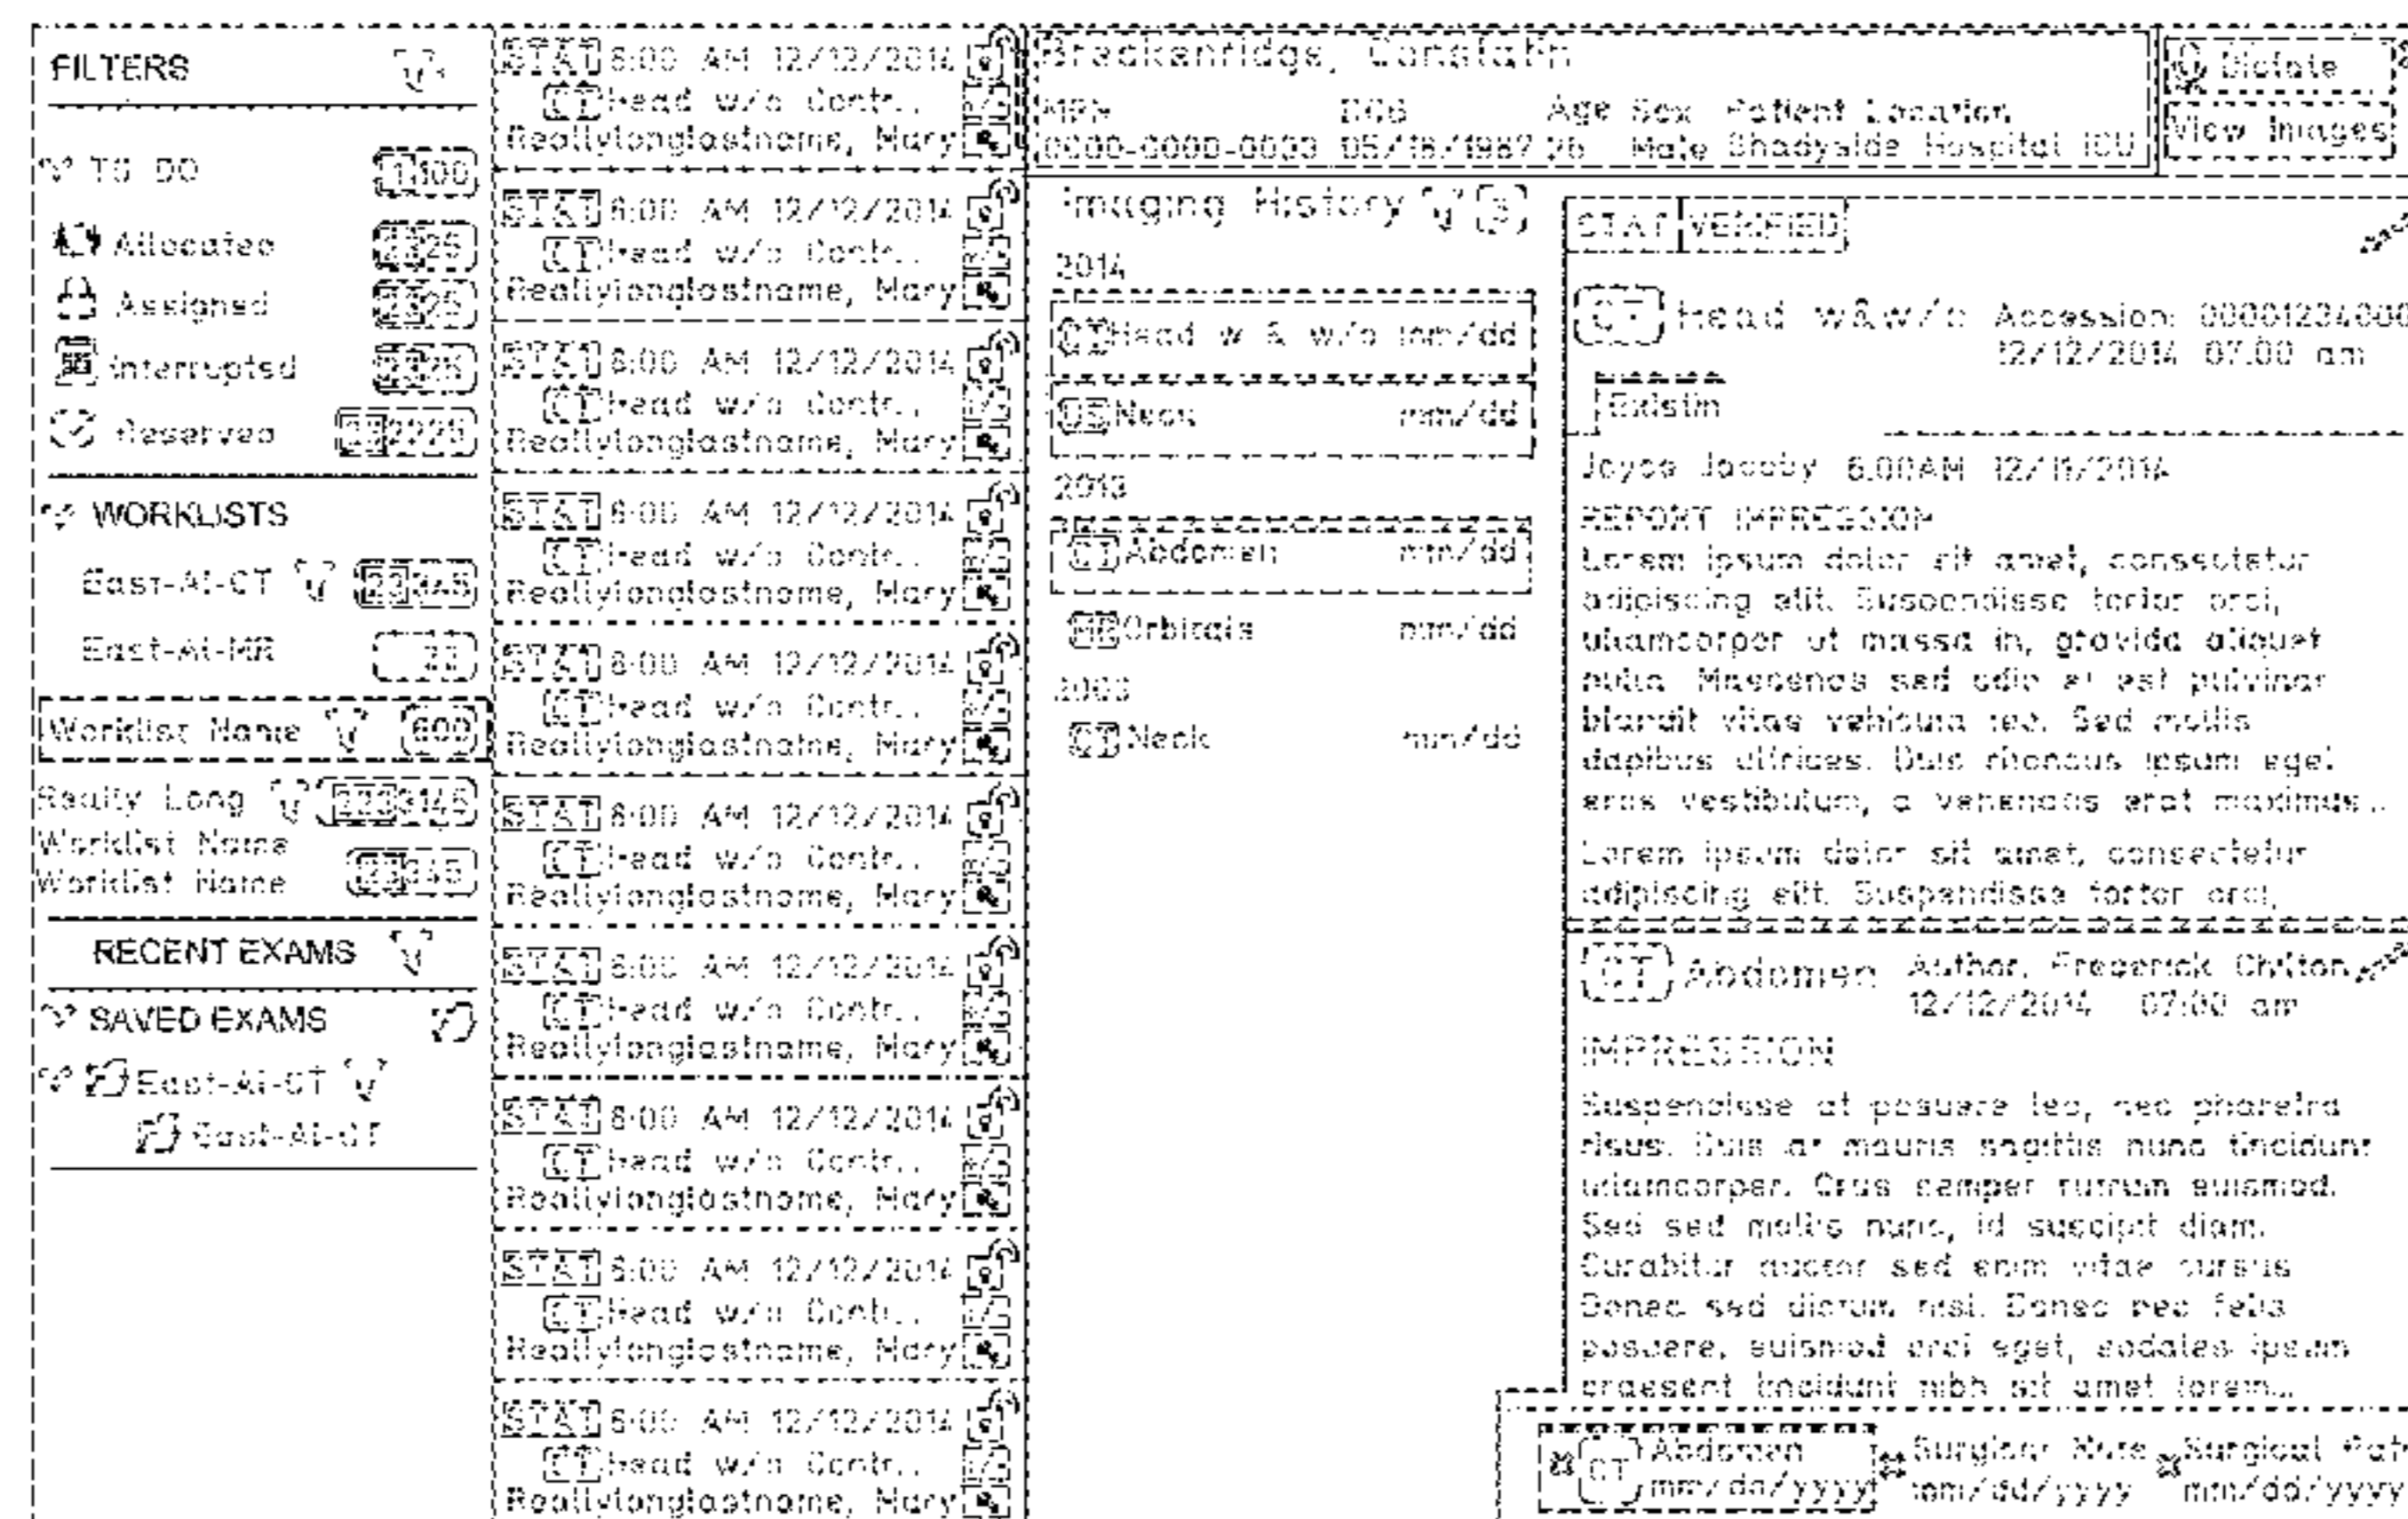 FILTERS
TO DO
1,100
Allocated
Assigned
Interrupted
Reserved
WORKLISTS
East-AI-CT
East-AI-MR
Worklist Name 600
Really Long
Worklist Name
Worklist Name
RECENT EXAMS
SAVED EXAMS
East-AI-CT
East-AI-CT
STAT 8:00 AM 12/12/2014
CT Head w/o Contr...
Reallylonglastname, Mary
STAT 8:00 AM 12/12/2014
CT Head w/o Contr...
Reallylonglastname, Mary
STAT 8:00 AM 12/12/2014
CT Head w/o Contr...
Reallylonglastname, Mary
STAT 8:00 AM 12/12/2014
CT Head w/o Contr...
Reallylonglastname, Mary
STAT 8:00 AM 12/12/2014
CT Head w/o Contr...
Reallylonglastname, Mary
STAT 8:00 AM 12/12/2014
CT Head w/o Contr...
Reallylonglastname, Mary
STAT 8:00 AM 12/12/2014
CT Head w/o Contr...
Reallylonglastname, Mary
STAT 8:00 AM 12/12/2014
CT Head w/o Contr...
Reallylonglastname, Mary
STAT 8:00 AM 12/12/2014
CT Head w/o Contr...
Reallylonglastname, Mary
STAT 8:00 AM 12/12/2014
CT Head w/o Contr...
Reallylonglastname, Mary
MRN DOB Age Sex Patient Location
0000-0000-0000 26 Male Shadyside Hospital ICU
Dictate
View Images
Imaging History 3
2014
CT Head w & w/o mm/dd
US Neck mm/dd
2013
CT Abdomen mm/dd
MR mm/dd
CT Neck mm/dd
STAT VERIFIED
CT Head w&w/o Accession:
12/12/2014 07:00 am
Joyce Jacoby
REPORT IMPRESSION
Lorem ipsum dolor sit amet, consectetur
adipiscing elit. Suspendisse tortor orci,
ullamcorper ut massa in, gravida aliquet
nulla. Maecenas sed odio at est pulvinar
blandit vitae vehicula nec. Sed mollis
dapibus ultrices. Duis rhoncus ipsum eget
eros vestibulum, a erat maximus...
Lorem ipsum dolor sit amet, consectetur
adipiscing elit. Suspendisse tortor orci,
CT Abdomen Author,
12/12/2014 07:00 am
IMPRESSION
Suspendisse at posuere leo, nec pharetra
risus. Duis ar mauris sagittis nunc tincidunt
ullamcorper. Cras semper rutrum euismod.
Sed sed mollis nunc, id suscipit diam.
Curabitur auctor sed enim vitae cursus
Donec sed dictum nisl. Donec nec felis
posuere, euismod orci eget, sodales ipsum
praesent tincidunt nibh sit amet lorem...
CT Abdomen
mm/dd/yyyy
Surgical Note
mm/dd/yyyy
Surgical Pat
mm/dd/yyyy